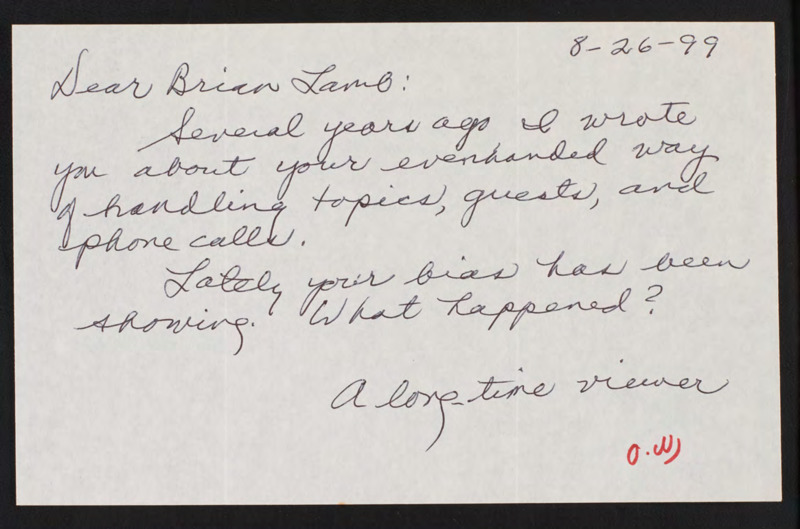 8-26-99
Dear Brian Lamb:
Several years ago I wrote
you about your evenhanded way
of handling topics, guests, and
phone calls.
Lately your bias has been
showing. What happened?
A long-time viewer